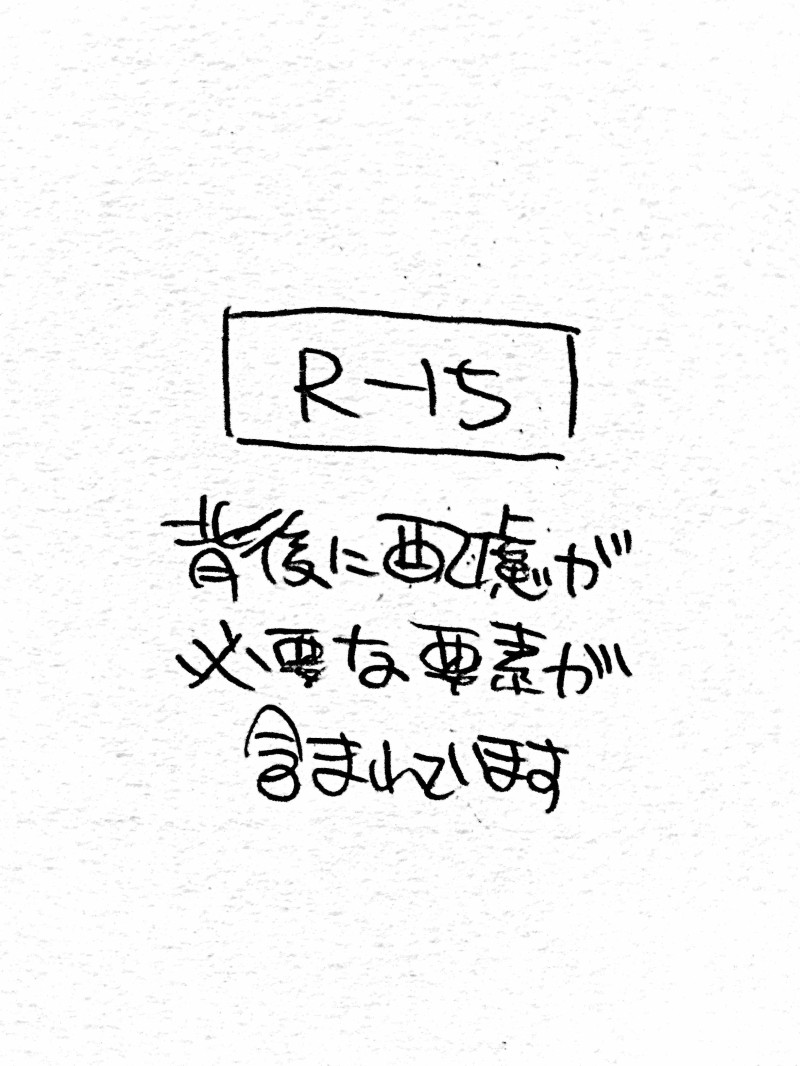 R-15
背後に配慮が
必要な要素が
含まれています